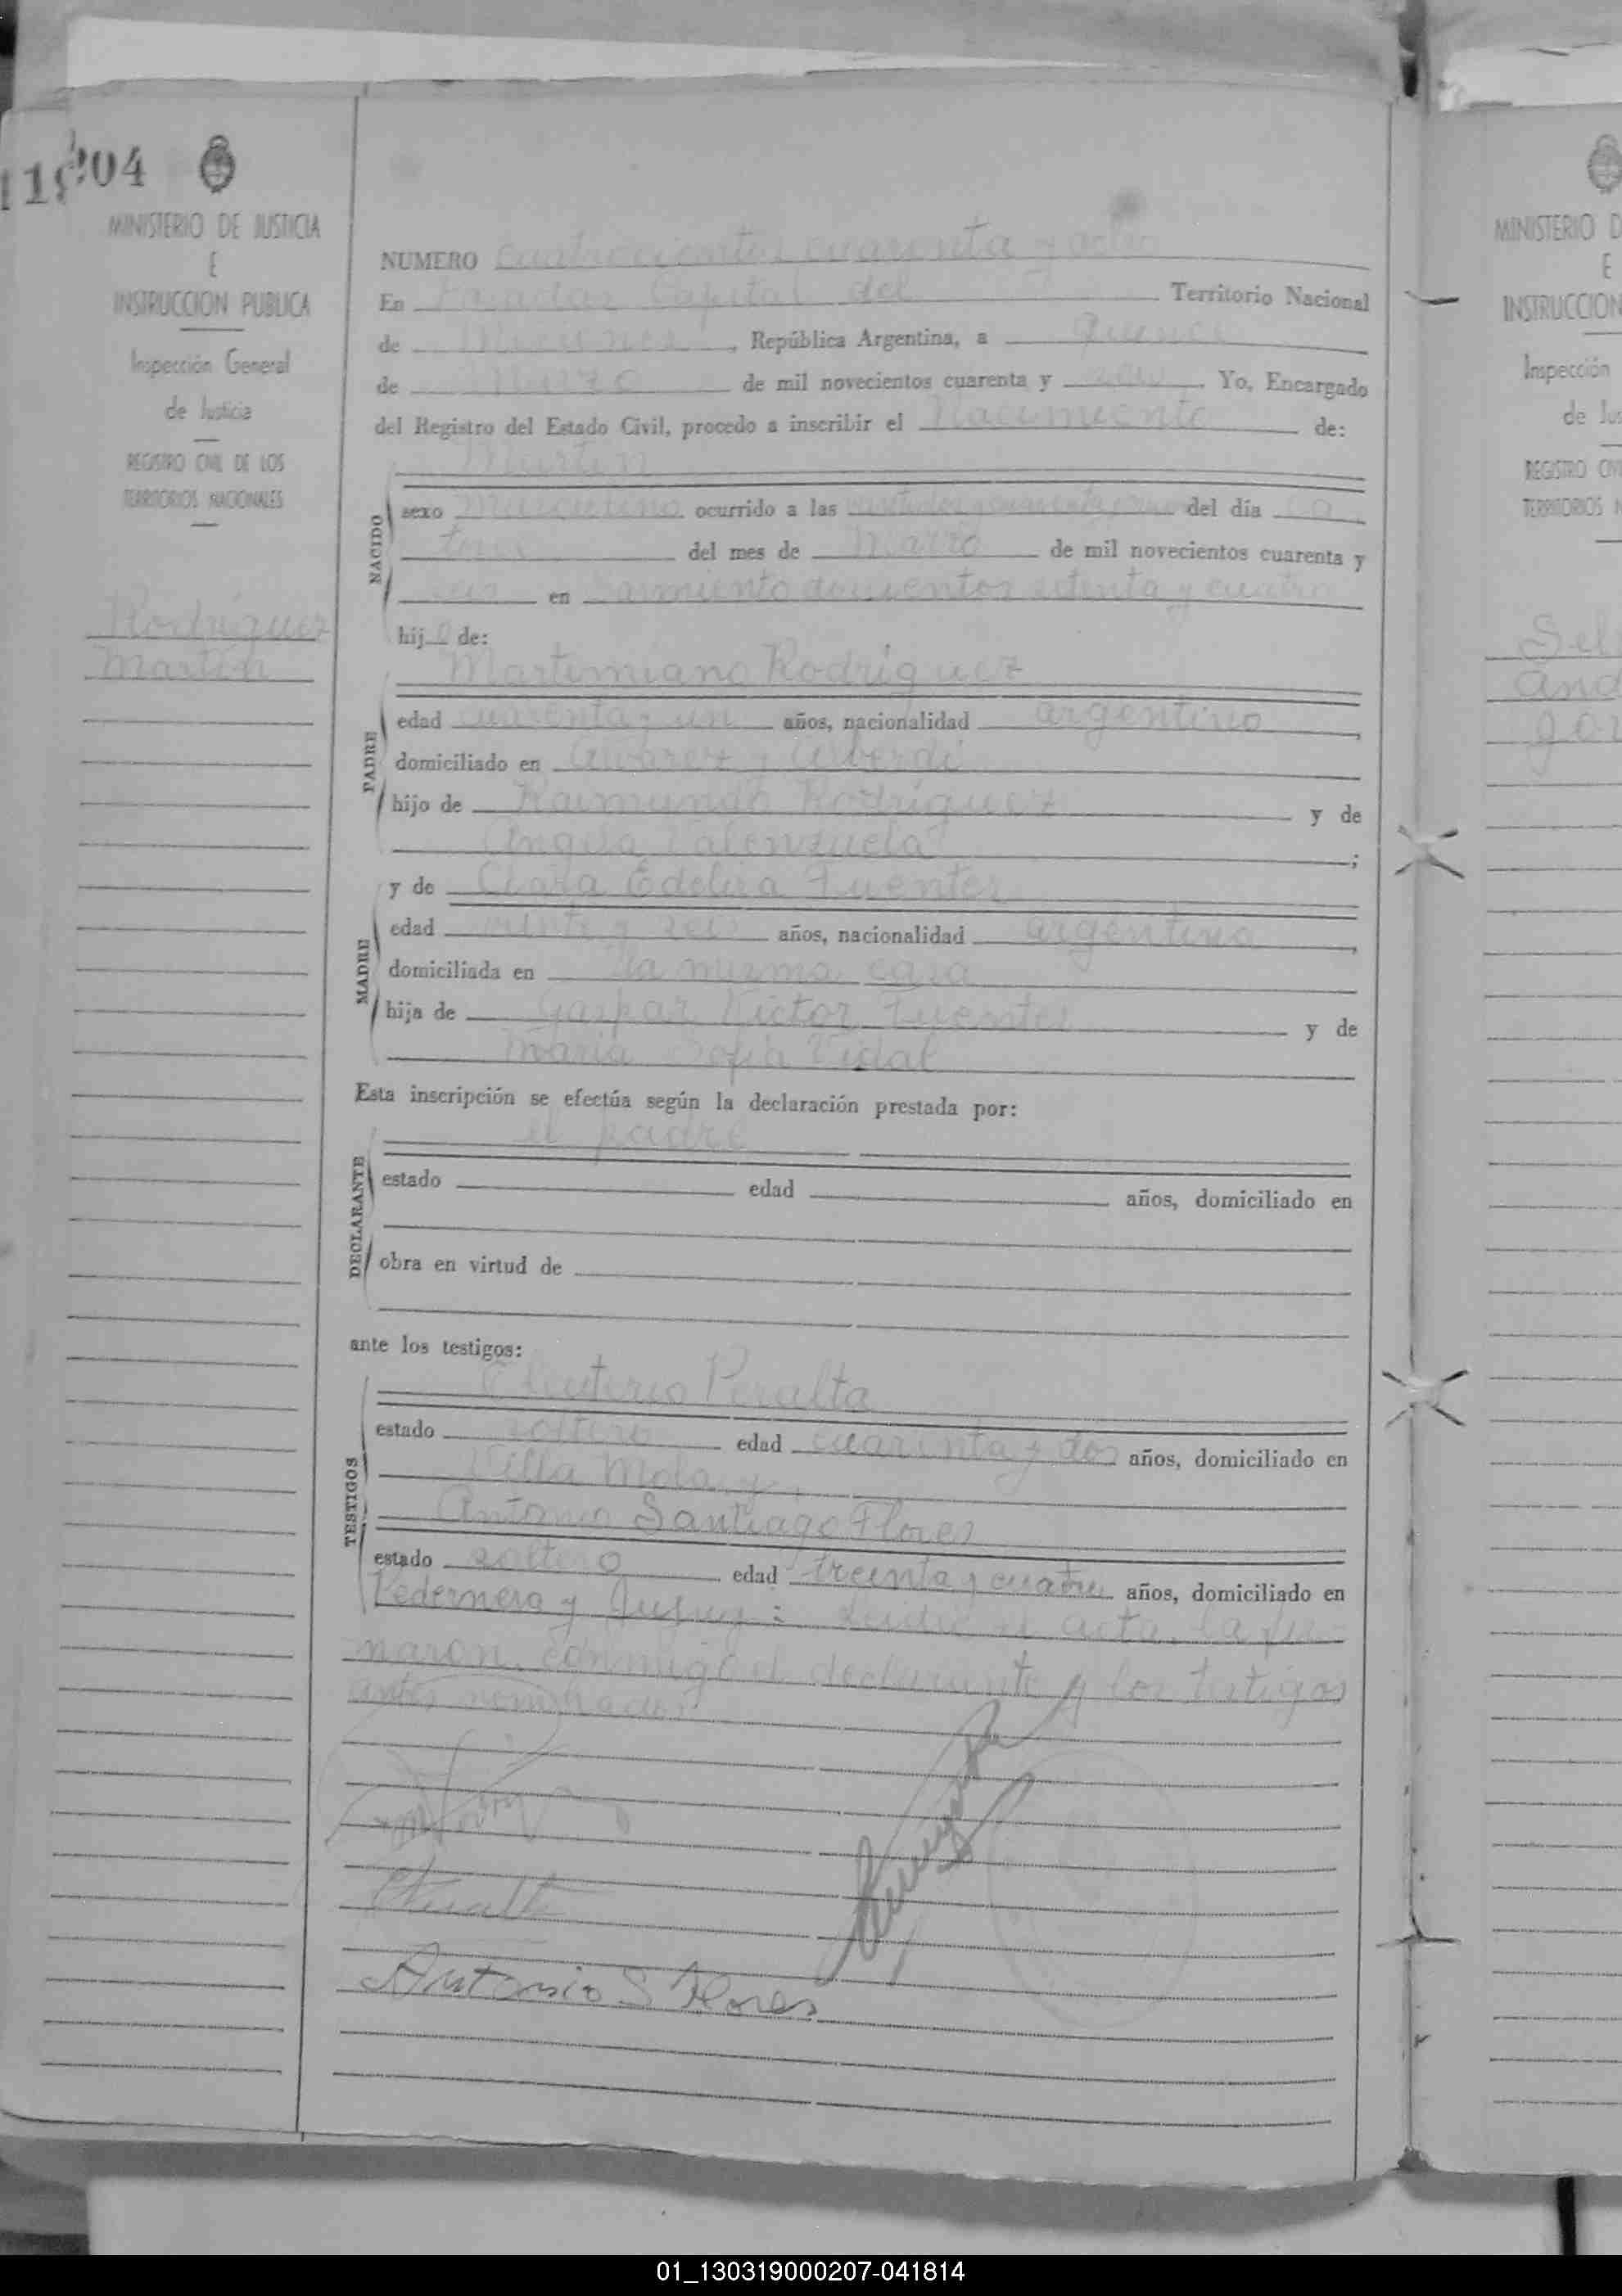 204
119
MINISTERIO DE JUSTICIA
E
INSTRUCCION PUBLICA
Inspección General
de Justicia
REGISTRO CIVIL DE LOS
TERRITORIOS NACIONALES
Rodriguez
Martin
NUMERO cuatrocientos cuarenta y ocho
En Posadas Capital del Territorio Nacional
de Misiones, República Argentina, a quince
de Marzo de mil novecientos cuarenta y seis. Yo, Encargado
del Registro del Estado Civil, procedo a inscribir el Nacimiento de:
Martin
NACIDO
sexo Masculino ocurrido a las del día ca
torce del mes de Marzo de mil novecientos cuarenta y
seis en Sarmiento doscientos setenta y cuatro
hijo de:
Martimiano Rodriguez
PADRE
edad cuarenta y un años, nacionalidad argentino,
domiciliado en Alvarez y Alberdi
hijo de Raimundo Rodriguez y de
Angela Valenzuela;
y de Clara Edelira Fuentes
MADRE
edad veinte y seis años, nacionalidad argentina,
domiciliada en la misma casa
hija de Gaspar Victor Fuentes y de
Maria Sofia Vidal
Esta inscripción se efectúa según la declaración prestada por:
el padre
DECLARANTE
estado edad años, domiciliado en
obra en virtud de
ante los testigos:
Eleuterio Peralta
TESTIGOS
estado soltero edad cuarenta y dos años, domiciliado en
Villa Mola y
Antonio Santiago Flores
estado soltero edad treinta y cuatro años, domiciliado en
Pedernera y Jujuy: Leida el acta, la fir-
maron conmigo el declarante y los testigos
antes nombrados
EPeralta
Antonio S Flores
MINISTERIO D
E
INSTRUCCION
Inspección
de Jus
REGISTRO CIV
TERRITORIOS N
Sel
And
Jor
01_130319000207-041814